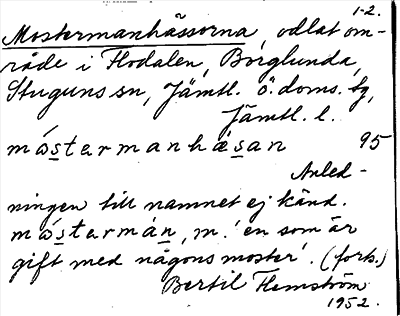 1-2.
Mostermanhässorna, odlat om-
råde i Flodalen, Borglunda,
Stuguns sn, Jämtl. ö. doms. tg,
Jämtl. l.
móstarmanhæsan 95
Anled-
ningen till namnet ej känd.
móstarmán, m. 'en som är
gift med någons moster'. (forts.)
Bertil Flemström
1952.